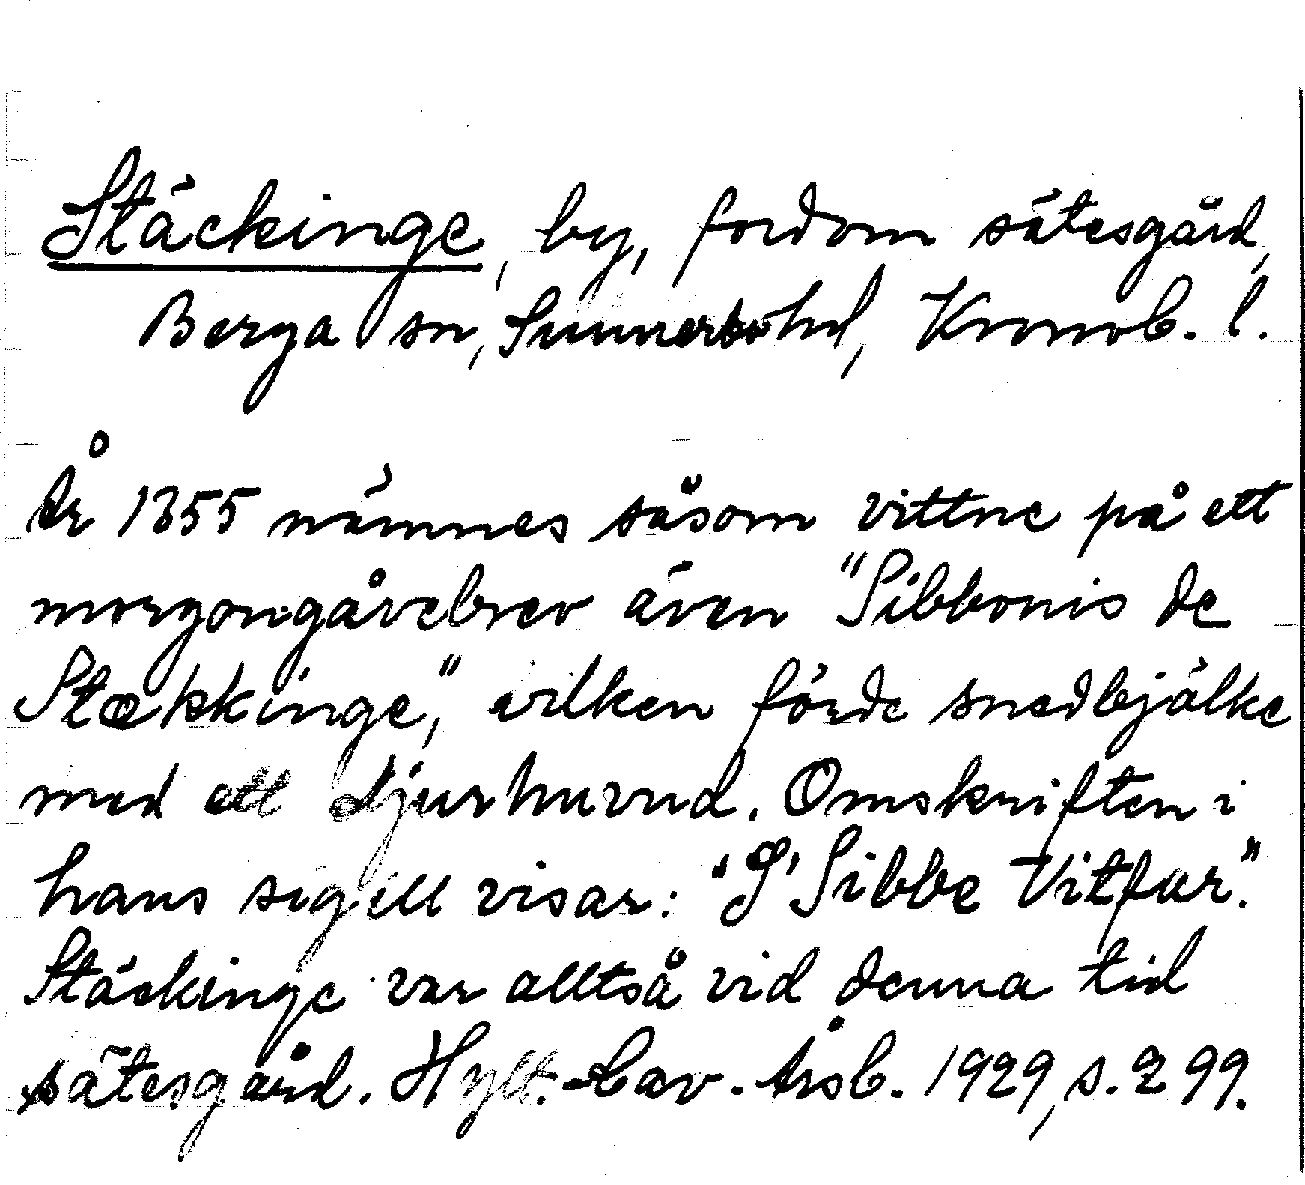 Stäckinge, by, fordom sätesgård,
Berga sn, Sunnerbohd, Kronob. l.
År 1355 nämnes såsom vittne på ett
morgongåvebrev även "Sibbonis de
Stækkinge", vilken förde snedbjälke
med ett djurhuvud. Omskriften i
hans sigill visar: "S' Sibbe Vitfar."
Stäckinge var alltså vid denna tid
sätesgård. Hylt.-Cav. Årsb. 1929, s. 299.